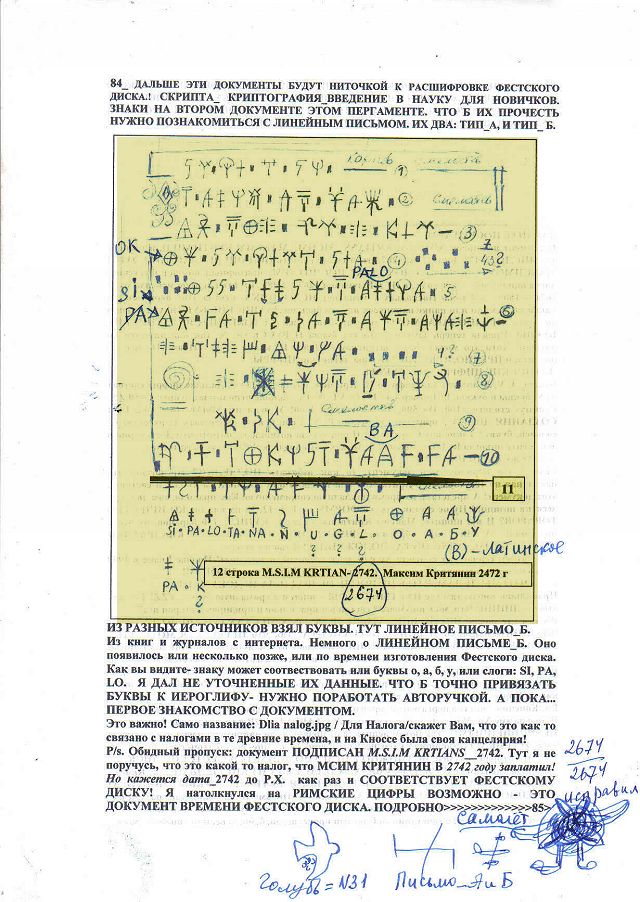 84_ ДАЛЬШЕ ЭТИ ДОКУМЕНТЫ БУДУТ НИТОЧКОЙ К РАСШИФРОВКЕ ФЕСТСКОГО
ДИСКА.! СКРИПТА_ КРИПТОГРАФИЯ_ВВЕДЕНИЕ В НАУКУ ДЛЯ НОВИЧКОВ.
ЗНАКИ НА ВТОРОМ ДОКУМЕНТЕ ЭТОМ ПЕРГАМЕНТЕ. ЧТО Б ИХ ПРОЧЕСТЬ
НУЖНО ПОЗНАКОМИТЬСЯ С ЛИНЕЙНЫМ ПИСЬМОМ. ИХ ДВА: ТИП_А, И ТИП_ Б.
1
2
3
ОК
4
432
PALO
Si
5
PA
6
7
8
9
BA
10
11
SI · PA · LO · TA · NA · N · U · G · L · O · A · Б · У
? ? ?
(В) - Латинское
PA · K
?
12 строка M.S.I.M KRTIAN- 2742. Максим Критянин 2472 г
2674
ИЗ РАЗНЫХ ИСТОЧНИКОВ ВЗЯЛ БУКВЫ. ТУТ ЛИНЕЙНОЕ ПИСЬМО_Б.
Из книг и журналов с интернета. Немного о ЛИНЕЙНОМ ПИСЬМЕ_Б. Оно
появилось или несколько позже, или по времнеи изготовления Фестского диска.
Как вы видите- знаку может соотвествовать или буквы о, а, б, у, или слоги: SI, PA,
LO. Я ДАЛ НЕ УТОЧНЕННЫЕ ИХ ДАННЫЕ. ЧТО Б ТОЧНО ПРИВЯЗАТЬ
БУКВЫ К ИЕРОГЛИФУ- НУЖНО ПОРАБОТАТЬ АВТОРУЧКОЙ. А ПОКА...
ПЕРВОЕ ЗНАКОМСТВО С ДОКУМЕНТОМ.
Это важно! Само название: Dlia nalog.jpg / Для Налога/скажет Вам, что это как то
связано с налогами в те древние времена, и на Кноссе была своя канцелярия!
P/s. Обидный пропуск: документ ПОДПИСАН M.S.I.M KRTIANS__2742. Тут я не
поручусь, что это какой то налог, что МСИМ КРИТЯНИН В 2742 году заплатил!
Но кажется дата_2742 до Р.Х. как раз и СООТВЕТСТВУЕТ ФЕСТСКОМУ
ДИСКУ! Я натолкнулся на РИМСКИЕ ЦИФРЫ ВОЗМОЖНО - ЭТО
ДОКУМЕНТ ВРЕМЕНИ ФЕСТСКОГО ДИСКА. ПОДРОБНО>>>>>>>>>>>>>85>
2674
2674
исправил
самолёт
Голубь = N31
Письмо_А и Б